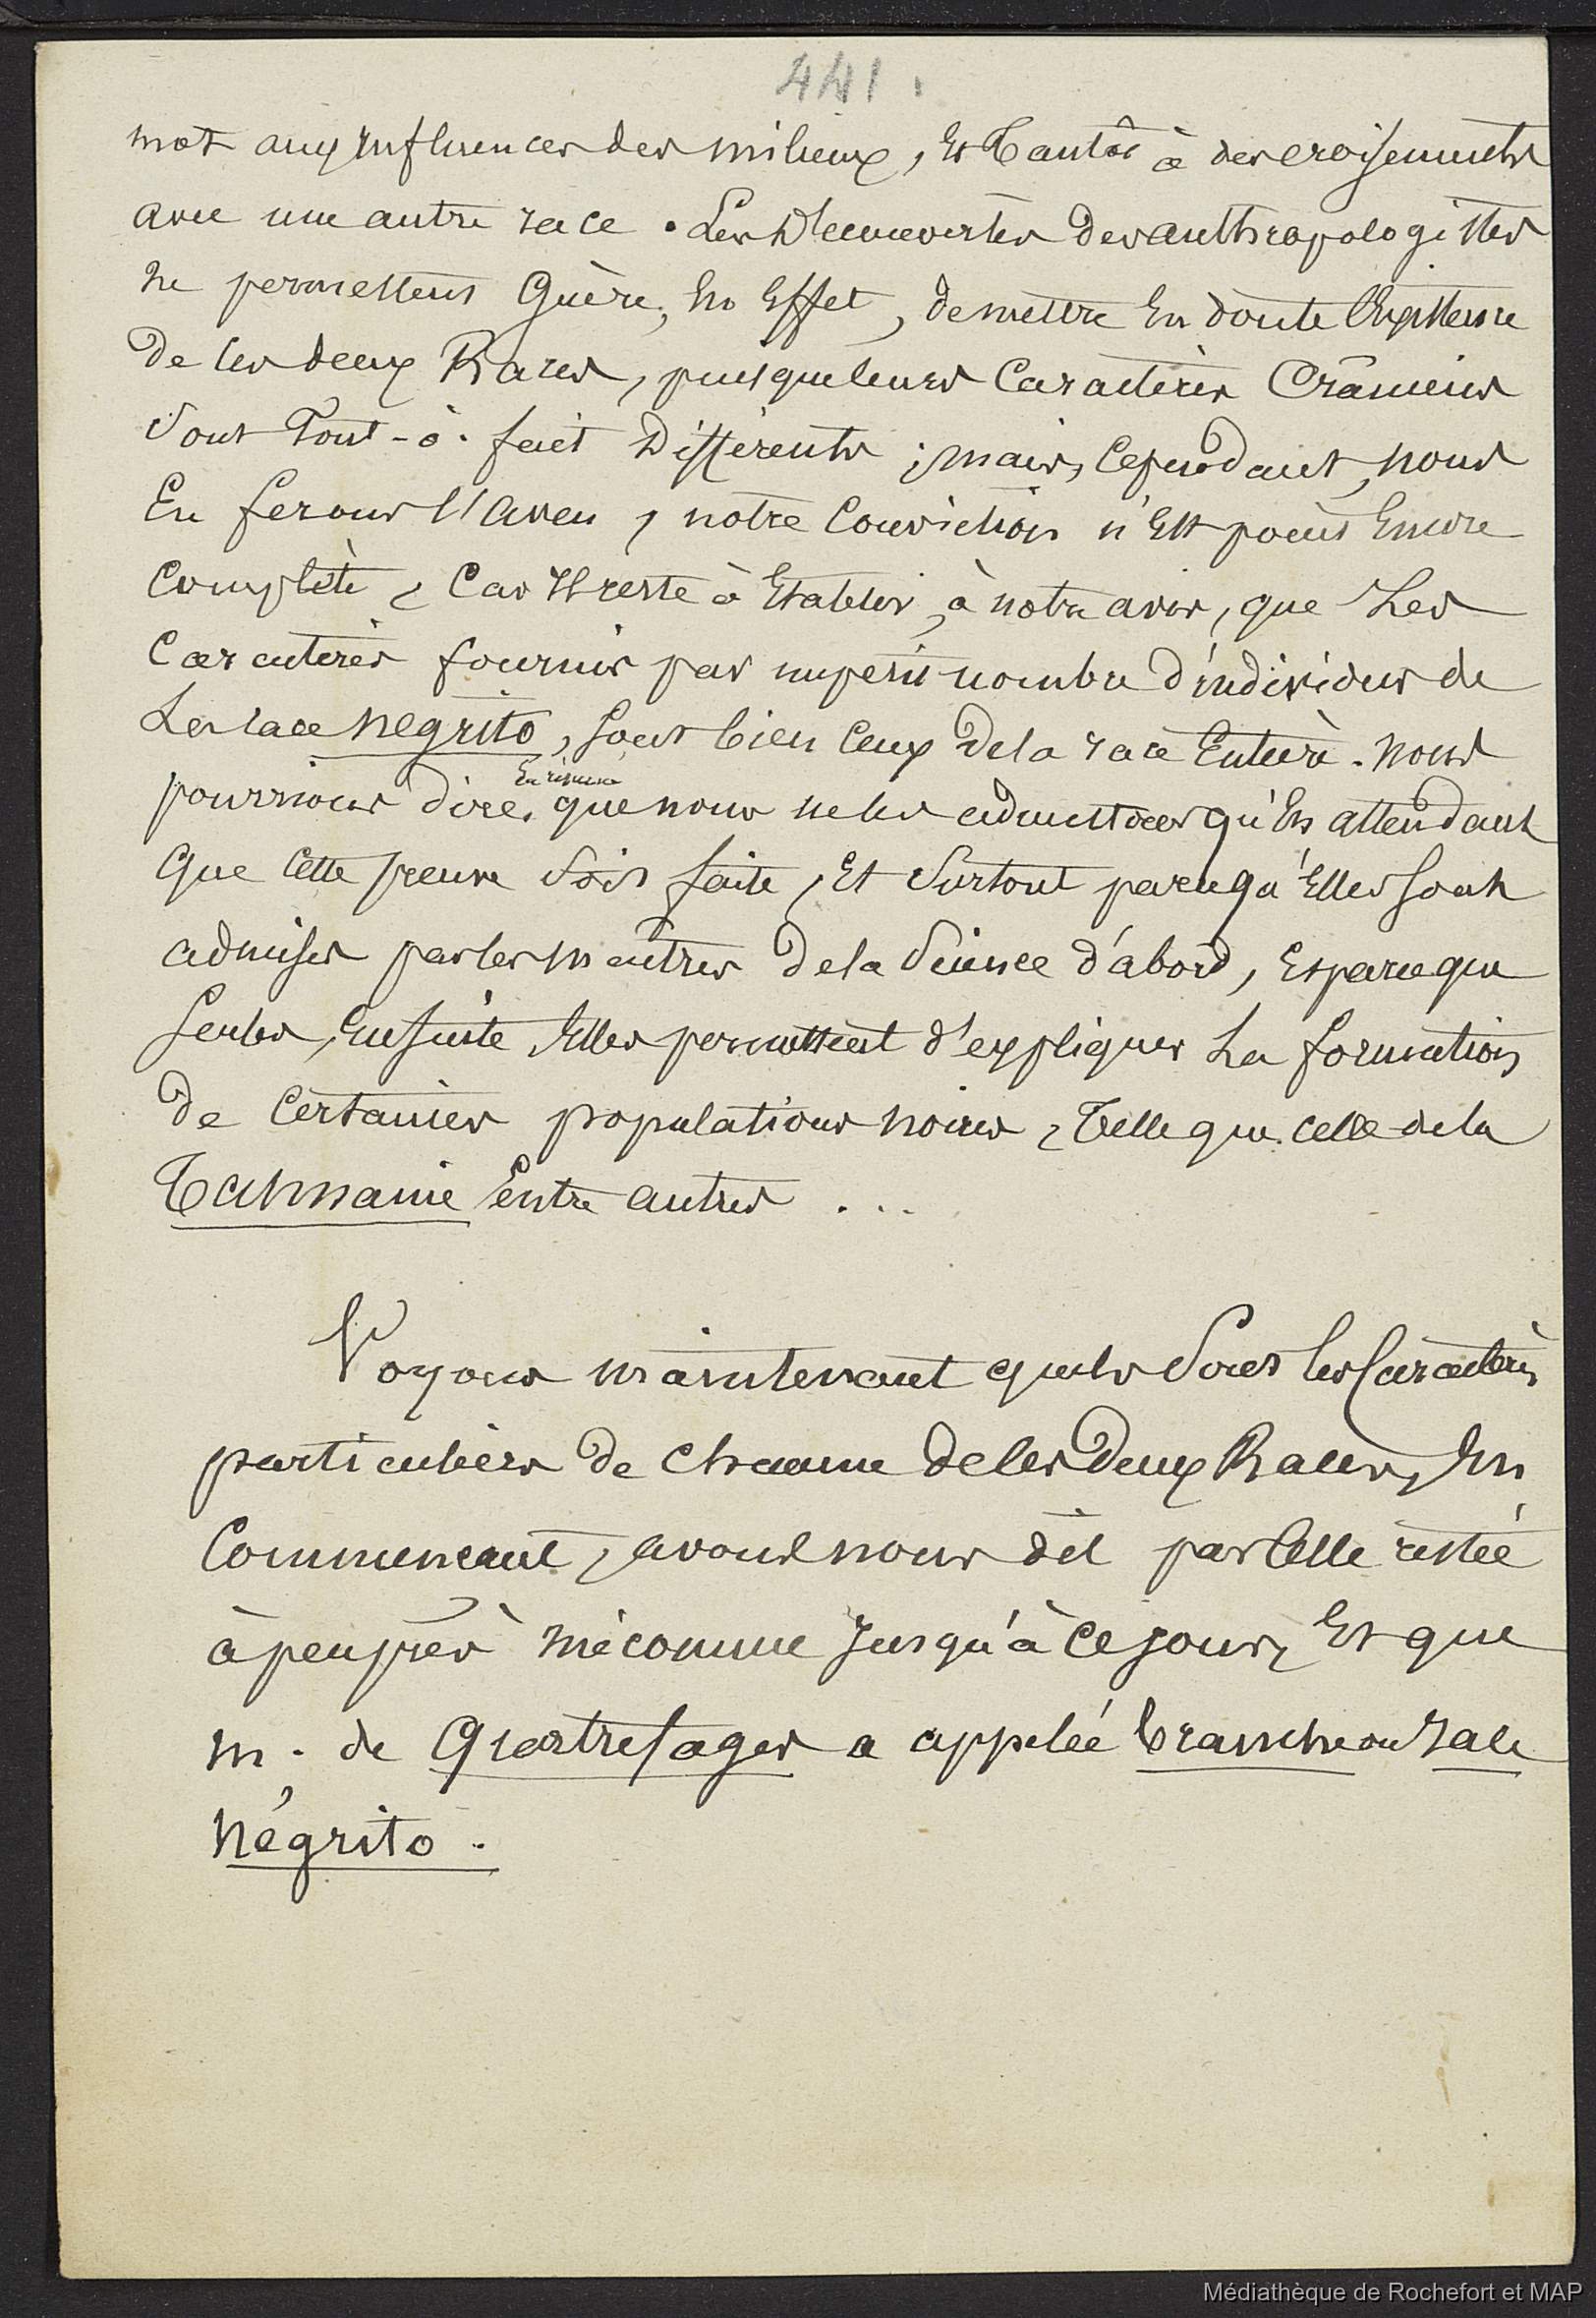 441.
mot aux influences des milieux, et tantôt à des croisements
avec une autre race. Les Découvertes des anthropologistes
ne permettent Guère, En Effet, de mettre En doute l'Existence
de ces deux Races, puisque leurs Caractères Crâniens
sont Tout-à-fait Différents ; mais, cependant, nous
En ferons l'aveu, notre Conviction n'Est point Encore
Complète, Car Il reste à Etablir, à notre avis, que Les
Caractères fournis par un petit nombre d'individus de
La race négrito, sont bien ceux de la race Entière. nous
En résumé
pourrions dire, que nous ne les admettons qu'En attendant
Que Cette preuve soit faite, Et surtout parcequ'Elles sont
admises par les maîtres de la science d'abord, Et parceque
seules, Ensuite Elles permettent d'expliquer La formation
de Certaines populations noires, Telle que celle de la
Tasmanie Entre autres ...
Voyons maintenant quels sont les Caractères
particuliers de chacune de ces Deux Races, En
Commençant, avons nous dit par Celle restée
à peu près méconnue Jusqu'à ce jour, Et que
m. de Quatrefages a appelée branche ou race
négrito.
Médiathèque de Rochefort et MAP